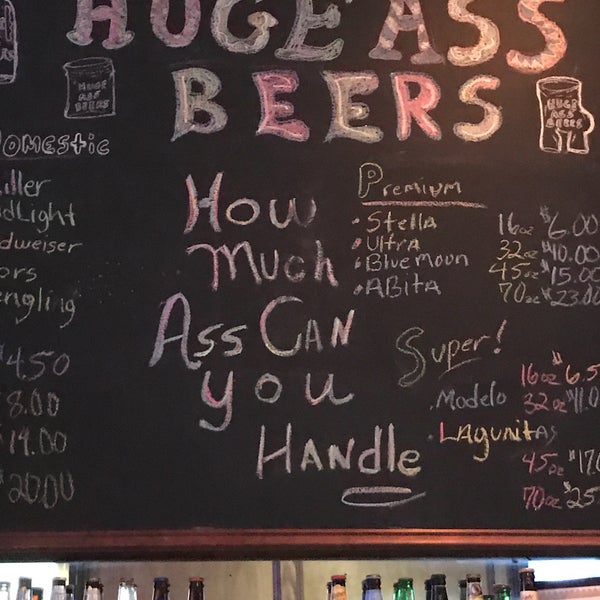 HUGE ASS
BEERS
HUGE ASS BEERS
HUGE ASS BEERS
omestic
iller
udLight
udweiser
ors
engling
4.50
8.00
14.00
20.00
How
much
Ass CAN
you
HANdle
Premium
• Stella
• Ultra
• Blue moon
• ABita
16oz $6.00
32oz $10.00
45oz $15.00
70oz $23.00
Super!
• Modelo
• LAGUNITAS
16oz $6.5
32oz $11.0
45oz $17.0
70oz $25